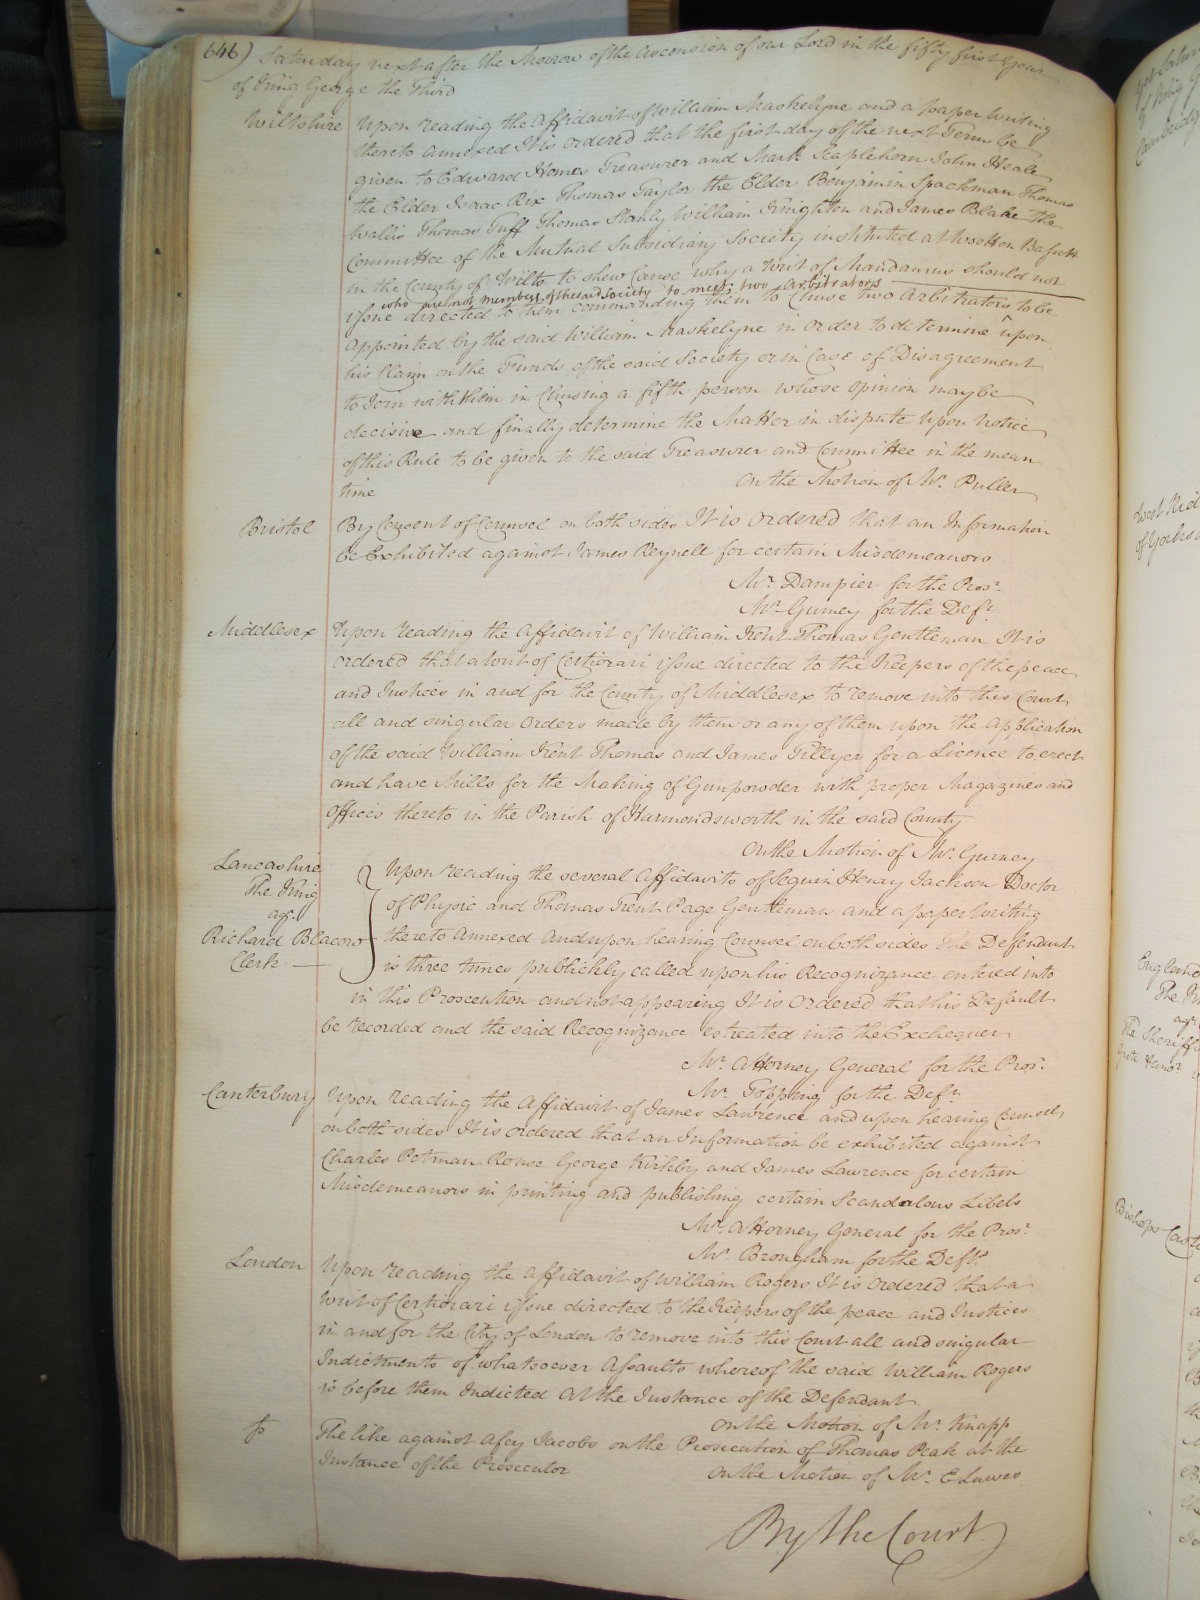 646) Saturday next after the Morrow of the Ascension of our Lord in the fifty first Year
of King George the Third
Wiltshire Upon reading the Affidavit of William Maskelyne and a paper Writing
thereto annexed It is ordered that the first day of the next Term be
given to Edward Homes Treasurer and Mark Staplehorn John Heale
the Elder Isaac Rix Thomas Taylor the Elder Benjamin Spackman Thomas
Wallis Thomas Tuff Thomas Stanly William Knighton and James Blake the
Committee of the Mutual Subsidiary Society instituted at Wootton Bassett
in the County of Wilts to shew Cause why a Writ of Mandamus should not
who are not members of the said Society to meet two Arbitrators
issue directed to them commanding them to Chuse two Arbitrators to be
appointed by the said William Maskelyne in order to determine ^ upon
his Claim on the Funds of the said Society or in Case of Disagreement
to Join with Him in Chusing a fifth person whose opinion may be
decisive and finally determine the Matter in dispute Upon Notice
of this Rule to be given to the said Treasurer and Committee in the mean
time On the Motion of Mr. Puller
Bristol By Consent of Counsel on both sides It is ordered that an Information
be Exhibited against James Reynell for certain Misdemeanors
Mr. Dampier for the Pros:r
Mr. Gurney for the Def:t
Middlesex Upon reading the Affidavit of William Kent Thomas Gentleman It is
ordered that a Writ of Certiorari issue directed to the Keepers of the peace
and Justices in and for the County of Middlesex to remove into this Court
all and singular Orders made by them or any of them upon the Application
of the said William Kent Thomas and James Tillyer for a Licence to erect
and have Mills for the Making of Gunpowder with proper Magazines and
Offices thereto in the Parish of Harmondsworth in the said County
On the Motion of Mr. Gurney
Lancashire
The King
agt.
Richard Blacow
Clerk
Upon reading the several Affidavits of Seguin Henry Jackson Doctor
of Physic and Thomas Trent Page Gentleman and a paper Writing
thereto Annexed And upon hearing Counsel on both sides The Defendant
is three times publickly called upon his Recognizance entered into
in this Prosecution and not appearing It is ordered that his Default
be recorded and the said Recognizance estreated into the Exchequer
Mr. Attorney General for the Pros:r
Mr. Topping for the Def:t
Canterbury Upon reading the Affidavit of James Lawrence and upon hearing Counsel
on both sides It is ordered that an Information be exhibited against
Charles Potman Rouse George Kirkby and James Lawrence for certain
Misdemeanors in printing and publishing certain Scandalous Libels
Mr. Attorney General for the Pros:r
Mr. Brougham for the Defts
London Upon reading the Affidavit of William Rogers It is ordered that a
Writ of Certiorari issue directed to the Keepers of the peace and Justices
in and for the City of London to remove into this Court all and singular
Indictments of whatsoever Assaults whereof the said William Rogers
is before them Indicted At the Instance of the Defendant
On the Motion of Mr. Knapp
The like against Asey Jacobs on the Prosecution of Thomas Peak at the
Instance of the Prosecutor On the Motion of Mr. E Lawes
By the Court
West Rid
of Yorksh
England
The
agt.
The Sheriff
Bishops Cast